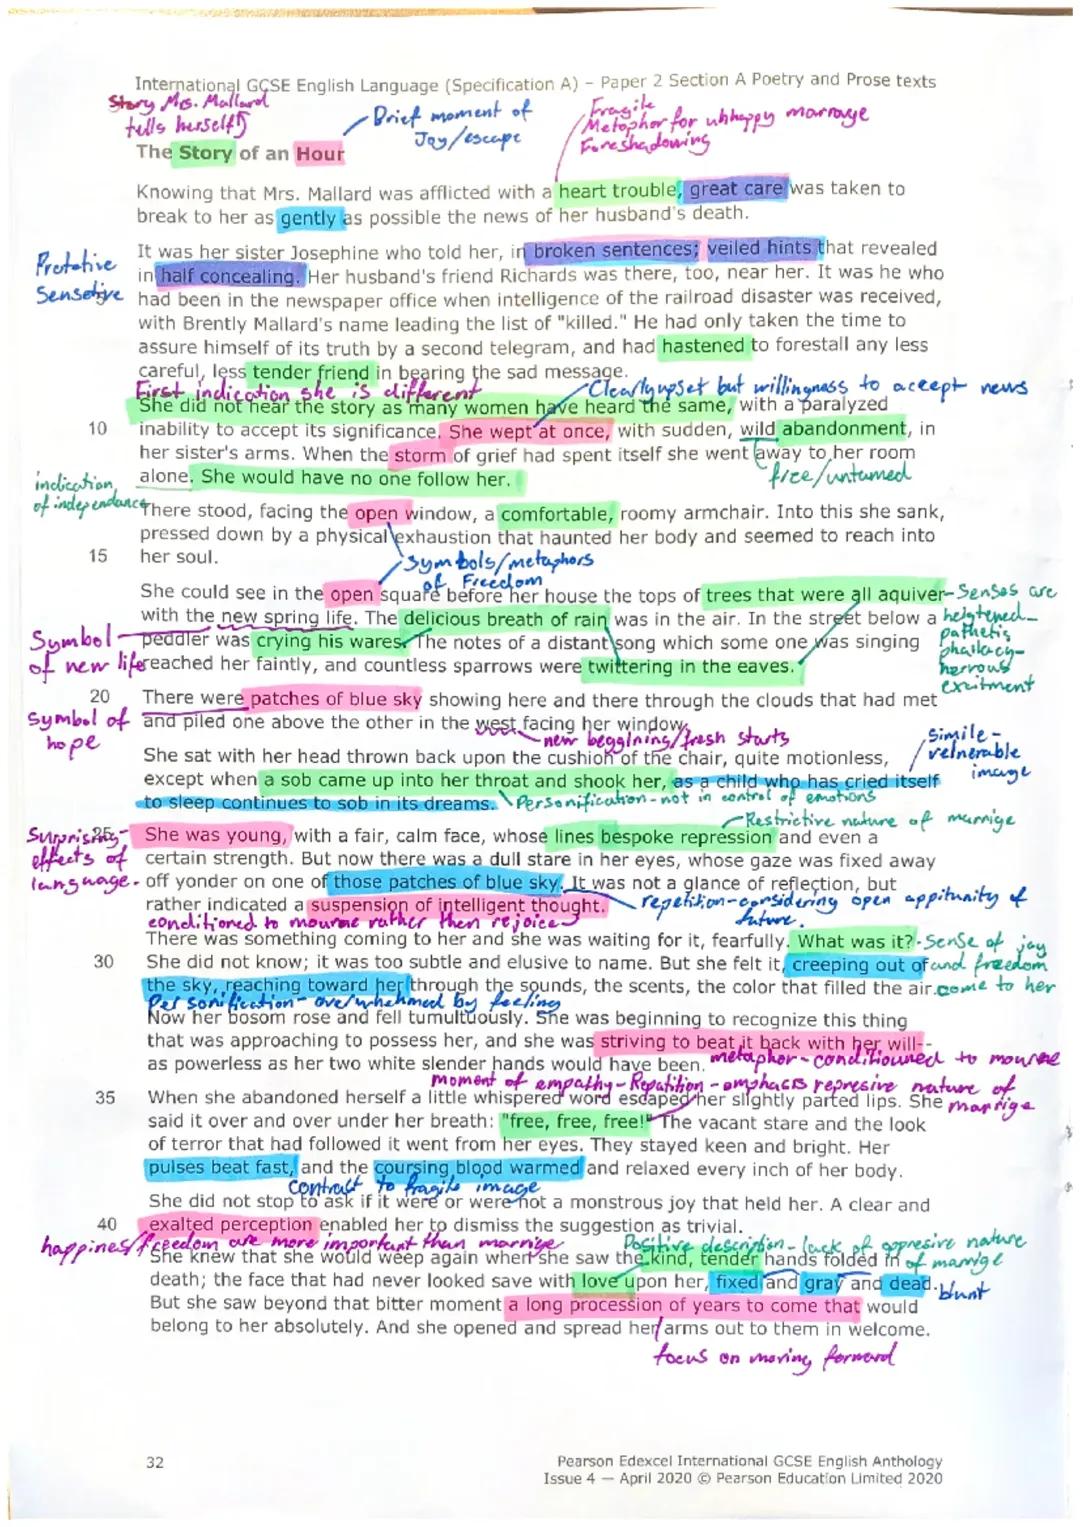 International GCSE English Language (Specification A) – Paper 2 Section A Poetry and Prose texts
Story Mrs. Mallard
tells herself
Brief moment of
Joy/escape
Fragile
Metaphor for unhappy marrage
Foreshadowing
The Story of an Hour
Knowing that Mrs. Mallard was afflicted with a heart trouble, great care was taken to
break to her as gently as possible the news of her husband's death.
It was her sister Josephine who told her, in broken sentences; veiled hints that revealed
in half concealing. Her husband's friend Richards was there, too, near her. It was he who
Protetive
Sensetive
had been in the newspaper office when intelligence of the railroad disaster was received,
with Brently Mallard's name leading the list of "killed." He had only taken the time to
assure himself of its truth by a second telegram, and had hastened to forestall any less
careful, less tender friend in bearing the sad message.
First indication she is different
Clearly upset but willingness to accept news
She did not hear the story as many women have heard the same, with a paralyzed
10 inability to accept its significance. She wept at once, with sudden, wild abandonment, in
her sister's arms. When the storm of grief had spent itself she went away to her room
free/untamed
alone. She would have no one follow her.
indication
of independance
There stood, facing the open window, a comfortable, roomy armchair. Into this she sank,
pressed down by a physical exhaustion that haunted her body and seemed to reach into
15 her soul.
Symbols/metaphors
of Freedom
She could see in the open square before her house the tops of trees that were all aquiver
with the new spring life. The delicious breath of rain was in the air. In the street below a
peddler was crying his wares. The notes of a distant song which some one was singing
reached her faintly, and countless sparrows were twittering in the eaves.
Senses are
heightened-
pathetis
phallacy-
nerrous
excitment
Symbol
of new life
20 There were patches of blue sky showing here and there through the clouds that had met
and piled one above the other in the west facing her window.
Symbol of
hope
new beggining/fresh starts
She sat with her head thrown back upon the cushion of the chair, quite motionless,
except when a sob came up into her throat and shook her, as a child who has cried itself
to sleep continues to sob in its dreams.
Simile-
velnerable
image
Personification-not in control of emotions
Restrictive nature of marrige
25 She was young, with a fair, calm face, whose lines bespoke repression and even a
certain strength. But now there was a dull stare in her eyes, whose gaze was fixed away
off yonder on one of those patches of blue sky. It was not a glance of reflection, but
rather indicated a suspension of intelligent thought.
Surprising
effects of
language.
repetition-considering open appitunity of
future.
conditioned to mourne rather then rejoice
There was something coming to her and she was waiting for it, fearfully. What was it?
30 She did not know; it was too subtle and elusive to name. But she felt it, creeping out of
the sky, reaching toward her through the sounds, the scents, the color that filled the air.
-Sense of joy
and freedom
come to her
Personification- overwhehmed by feeling
Now her bosom rose and fell tumultuously. She was beginning to recognize this thing
that was approaching to possess her, and she was striving to beat it back with her will--
as powerless as her two white slender hands would have been.
metaphor-conditiouned to mourne
moment of empathy-Repatition-emphacis represive nature of
marrige
35 When she abandoned herself a little whispered word escaped her slightly parted lips. She
said it over and over under her breath: "free, free, free!" The vacant stare and the look
of terror that had followed it went from her eyes. They stayed keen and bright. Her
pulses beat fast, and the coursing blood warmed and relaxed every inch of her body.
contrast to fragile image
She did not stop to ask if it were or were not a monstrous joy that held her. A clear and
40 exalted perception enabled her to dismiss the suggestion as trivial.
happiness/freedom are more important than marrige
Positive description-lack of oppresive nature
of marrige
She knew that she would weep again when she saw the kind, tender hands folded in
death; the face that had never looked save with love upon her, fixed and gray and dead.
blunt
But she saw beyond that bitter moment a long procession of years to come that would
belong to her absolutely. And she opened and spread her arms out to them in welcome.
focus on moving forward
32
Pearson Edexcel International GCSE English Anthology
Issue 4 — April 2020 © Pearson Education Limited 2020